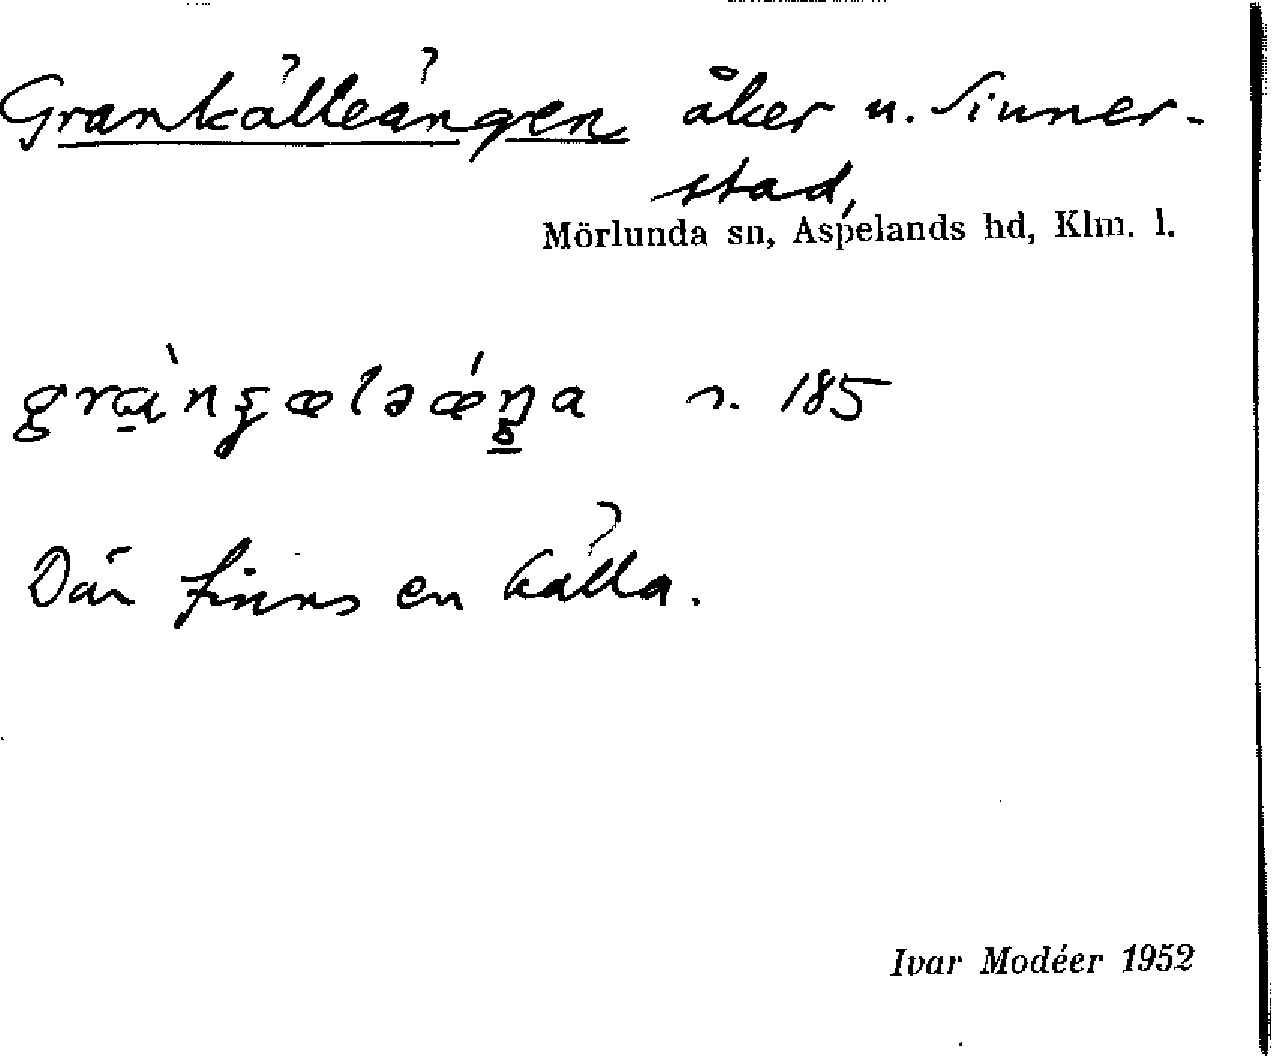 Grankälleängen åker u. Sinner-
stad,
Mörlunda sn, Aspelands hd, Klm. l.
r. 185
Där finns en källa.
Ivar Modéer 1952